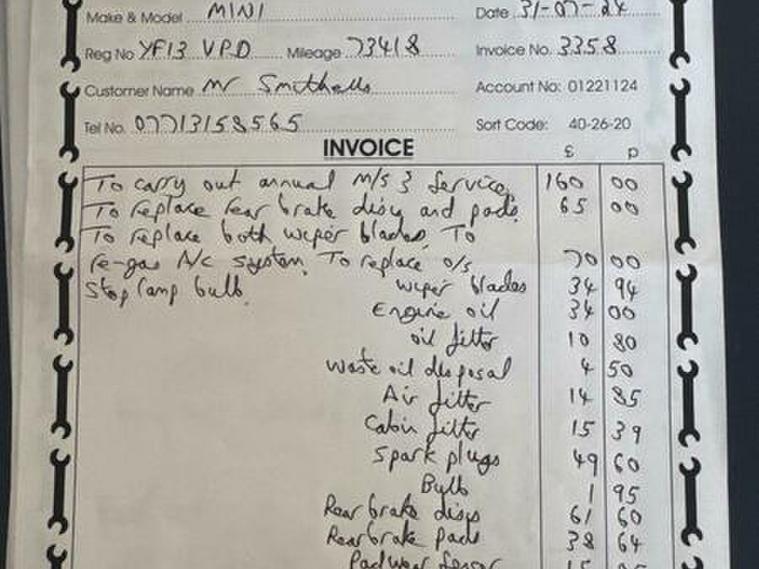 Make & Model MINI Date 31-07-24
Reg No YF13 VPD Mileage 73418 Invoice No. 3358
Customer Name Mr Smithells Account No: 01221124
Tel No. 07713158565 Sort Code: 40-26-20
INVOICE £ p
To carry out annual M/S 3 Service, 160 00
To replace rear brake discs and pads 65 00
To replace both wiper blades, To
re-gas A/C system, To replace o/s 70 00
Stop lamp bulb. wiper blades 34 94
Engine oil 34 00
oil filter 10 80
Waste oil disposal 4 50
Air filter 14 85
Cabin filter 15 39
Spark plugs 49 60
Bulb 1 95
Rear brake discs 61 60
Rear brake pads 38 64
Pad wear sensor 15